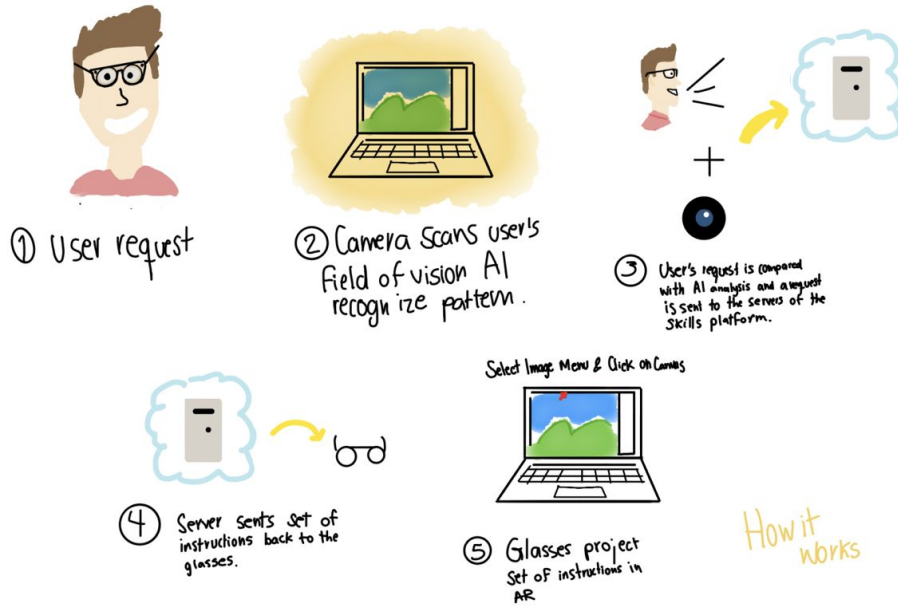 ① User request
② Camera scans user's
field of vision AI
recognize pattern.
③ User's request is compared
with AI analysis and a request
is sent to the servers of the
skills platform.
④ Server sents set of
instructions back to the
glasses.
Select Image Menu & Click on Canvas
⑤ Glasses project
set of instructions in
AR
How it
works